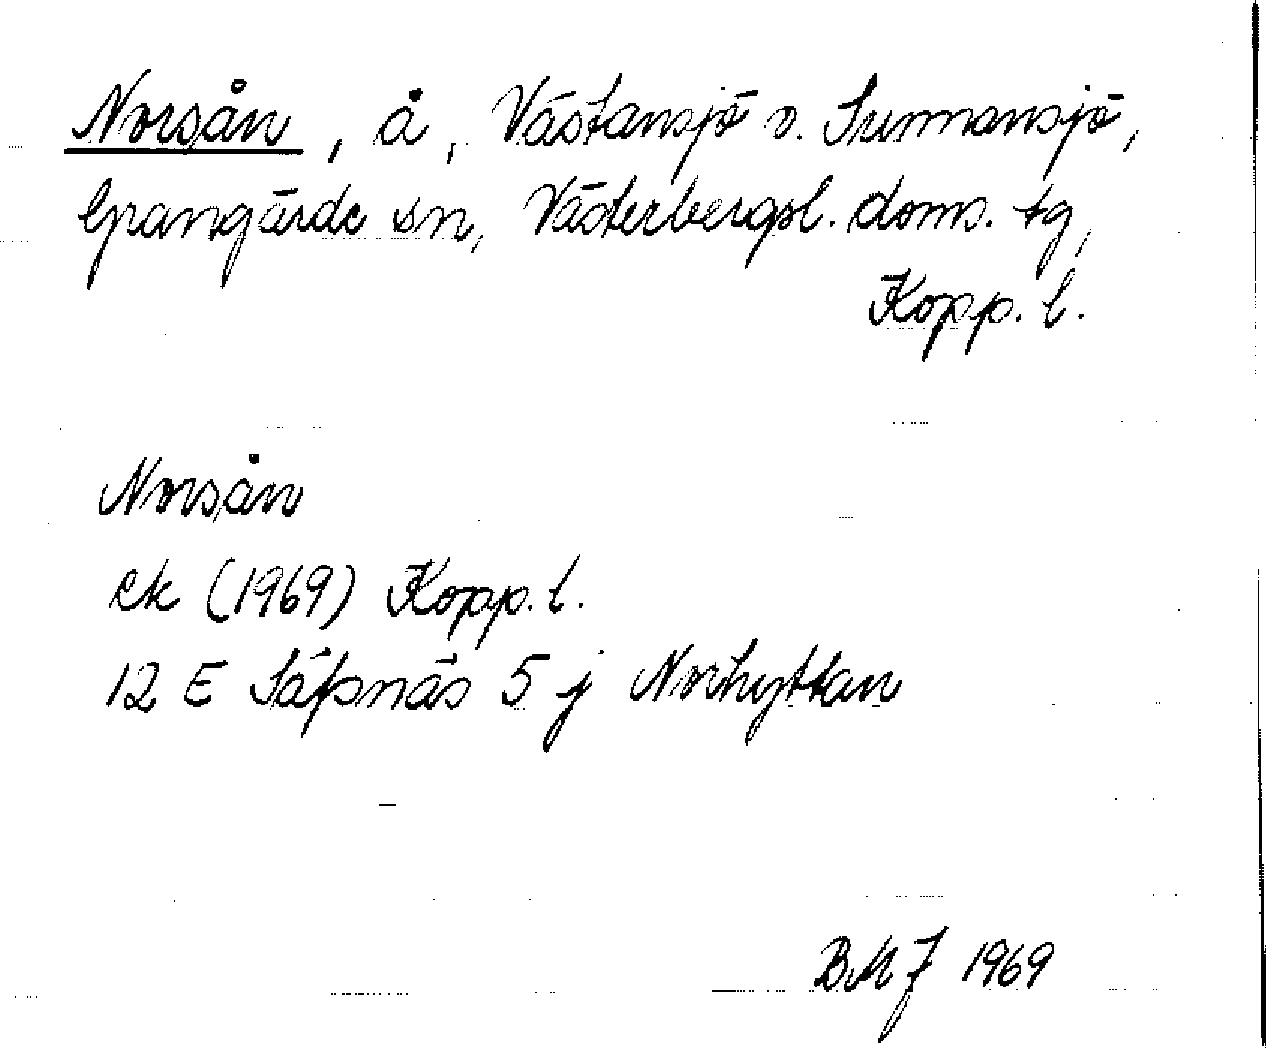 Norsån, å, Västansjö o. Sunnansjö,
Grangärde sn, Västerbergsl. doms. tg,
Kopp. l.
Norsån
ek (1969) Kopp. l.
12 E Säfsnäs 5 j Norhyttan
BMJ 1969